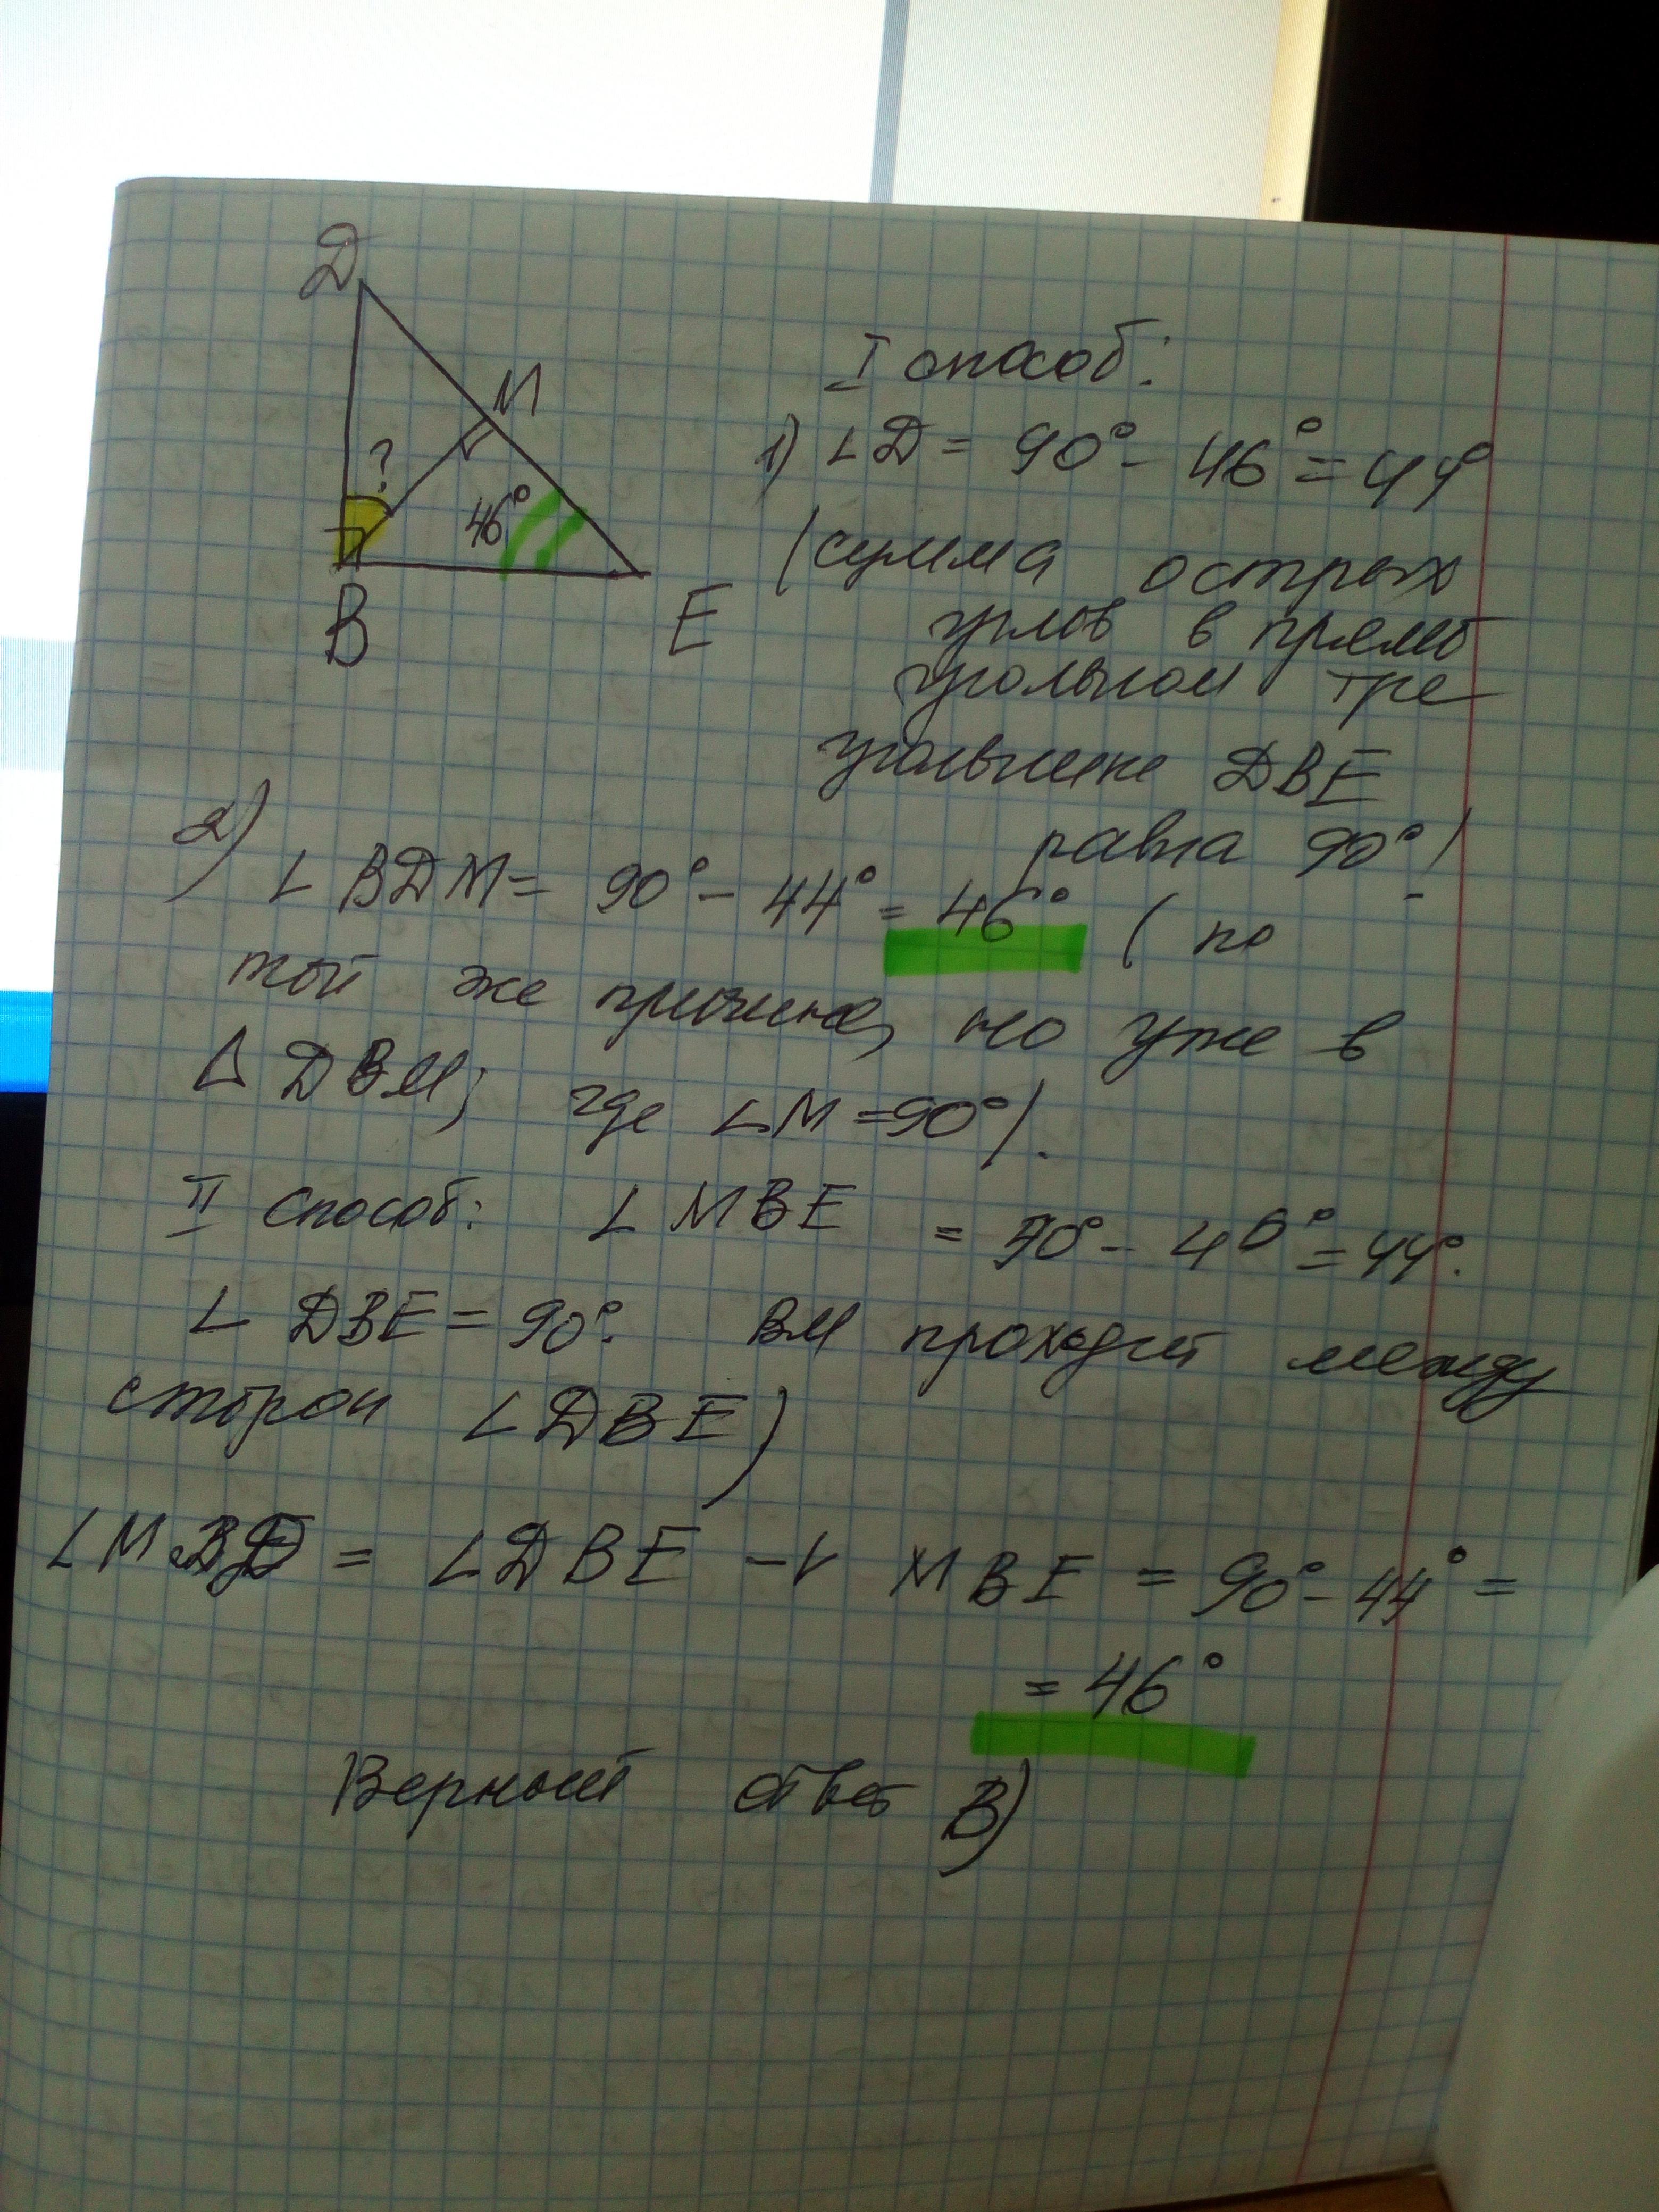 Д
М
?
46°
В
Е
I способ:
1) ∠Д = 90° - 46° = 44°
(сумма острых
углов в прямо
угольном тре
угольнике ДВЕ
равна 90°)
2) ∠ВДМ = 90° - 44° = 46° (по
той же причине, но уже в
Δ ДВМ, где ∠М = 90°).
II способ: ∠МВЕ = 90° - 46° = 44°.
∠ДВЕ = 90°. ВМ проходит между
сторон ∠ДВЕ)
∠МВД = ∠ДВЕ - ∠МВЕ = 90° - 44° =
= 46°
Верный ответ В)